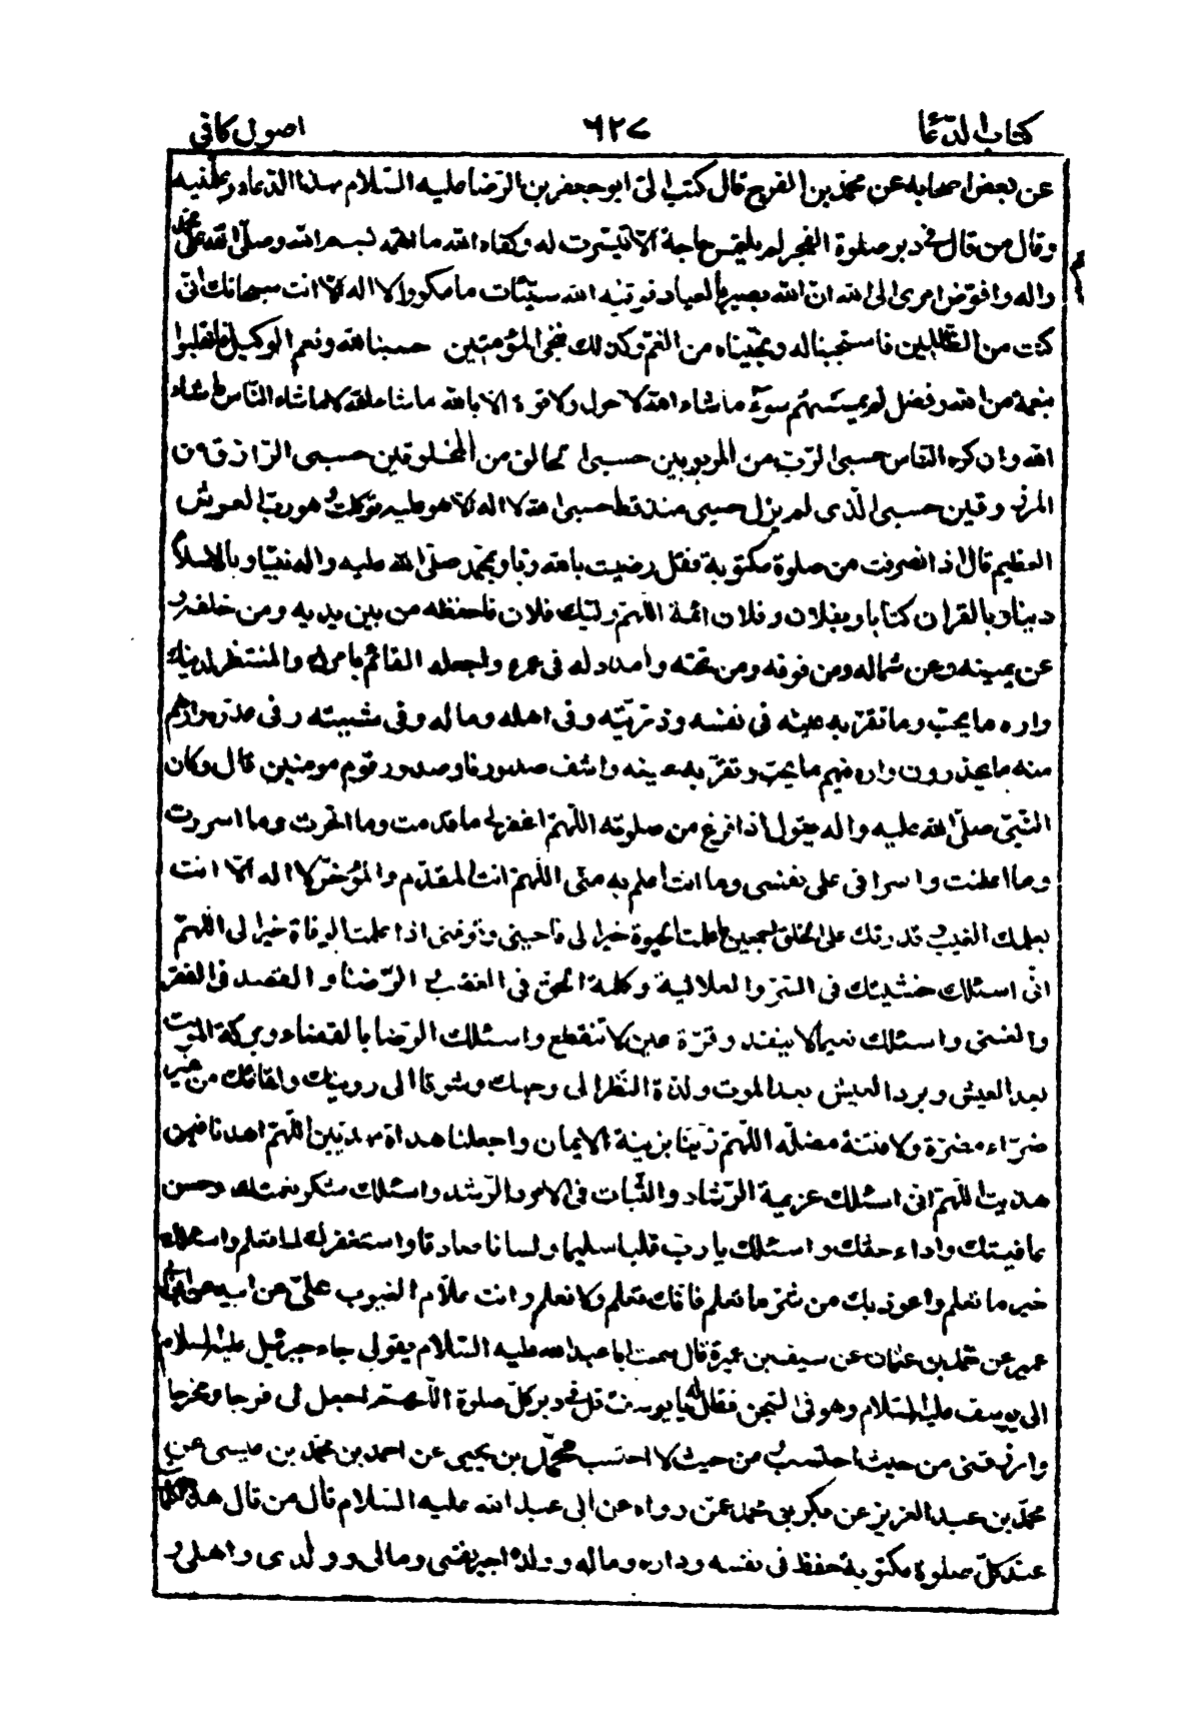 كتاب الدّعا ٦٢٧ اصول كافى
عن بعض اصحابه عن محمّد بن الفرج قال كتب الىّ ابو جعفر بن الرّضا عليه السّلام بهذا الدّعاء وعلّمنيه
وقال من قال فى دبر صلوة الفجر لم يلتمس حاجة الّا تيسّرت له وكفاه الله ما اهمّه بسم الله وصلّى الله على محمّد
واله وافوّض امرى الى الله انّ الله بصير بالعباد فوقيه الله سيّئات ما مكروا لا اله الّا انت سبحانك انّى
كنت من الظّالمين فاستجبنا له ونجّيناه من الغمّ وكذلك ننجى المؤمنين حسبنا الله ونعم الوكيل فانقلبوا
بنعمة من الله وفضل لم يمسسهم سوء ما شاء الله لا حول ولا قوة الا بالله ما شاء الله لا ما شاء النّاس ما شاء
الله وان كره النّاس حسبى الرّب من المربوبين حسبى الخالق من المخلوقين حسبى الرّازق من
المرزوقين حسبى الّذى لم يزل حسبى منذ قط حسبى الله لا اله الّا هو عليه توكّلت وهو ربّ العرش
العظيم قال اذا انصرفت من صلوة مكتوبة فقل رضيت بالله ربّا وبمحمّد صلّى الله عليه واله نبيّا وبالاسلام
دينا وبالقران كتابا وبفلان وفلان ائمة اللّهمّ وليّك فلان فاحفظه من بين يديه ومن خلفه و
عن يمينه وعن شماله ومن فوقه ومن تحته وامدد له فى عمره واجعله القائم بامرك والمنتظر لدينك
واره ما يحبّ وما تقرّ به عينه فى نفسه وذرّيّته وفى اهله وماله وفى شيعته وفى عدّوه وارهم
منه ما يحذرون واره فيهم ما يحبّ وتقرّ به عينه واشف صدورنا وصدور قوم مومنين قال وكان
النّبىّ صلّى الله عليه واله يقول اذا فرغ من صلوته اللّهمّ اغفر لى ما قدمت وما اخّرت وما اسررت
وما اعلنت واسرافى على نفسى وما انت اعلم به منّى اللّهمّ انت المقدّم والمؤخّر لا اله الّا انت
بعلمك الغيب وبقدرتك على الخلق اجمعين ما علمت الحيوة خيرا لى فاحينى وتوفنى اذا علمت الوفاة خيرا لى اللّهمّ
انّى اسئلك خشيتك فى السّرّ والعلانية وكلمة الحقّ فى الغضب والرّضا والقصد فى الفقر
والغنى واسئلك نعيما لا ينفد وقرّة عين لا تنقطع واسئلك الرّضا بالقضاء وبركة الموت
بعد العيش وبرد العيش بعد الموت ولذة النّظر الى وجهك وشوقا الى رويتك ولقائك من غير
ضرّاء مضرّة ولا فتنة مضلّه اللّهمّ زيّنّا بزينة الايمان واجعلنا هداة مهديّين اللّهمّ اهدنا فيمن
هديت اللّهمّ انى اسئلك عزيمة الرّشاد والثّبات فى الامر والرّشد واسئلك شكر نعمتك وحسن
عافيتك واداء حقّك واسئلك يا ربّ قلبا سليما ولسانا صادقا واستغفرك لما تعلم واسئلك
خير ما تعلم واعوذ بك من شرّ ما تعلم فانّك تعلم ولا نعلم وانت علّام الغيوب علىّ عن ابيه عن ابن ابى
عمير عن محمّد بن عثمان عن سيف بن عميرة قال سمعت ابا عبد الله عليه السّلام يقول جاء جبرئيل عليه السلام
الى يوسف عليه السّلام وهو فى السّجن فقال له يا يوسف قل فى دبر كلّ صلوة اللّهمّ اجعل لى فرجا ومخرجا
وارزقنى من حيث احتسب ومن حيث لا احتسب محمّد بن يحيى عن احمد بن محمّد بن عيسى عن
محمّد بن عبد العزيز عن بكر بن محمد عمّن رواه عن ابى عبد الله عليه السّلام قال من قال هذه الكلمات
عند كلّ صلوة مكتوبة حفظ فى نفسه وداره وماله وولده اجير نفسى ومالى وولدى واهلى و